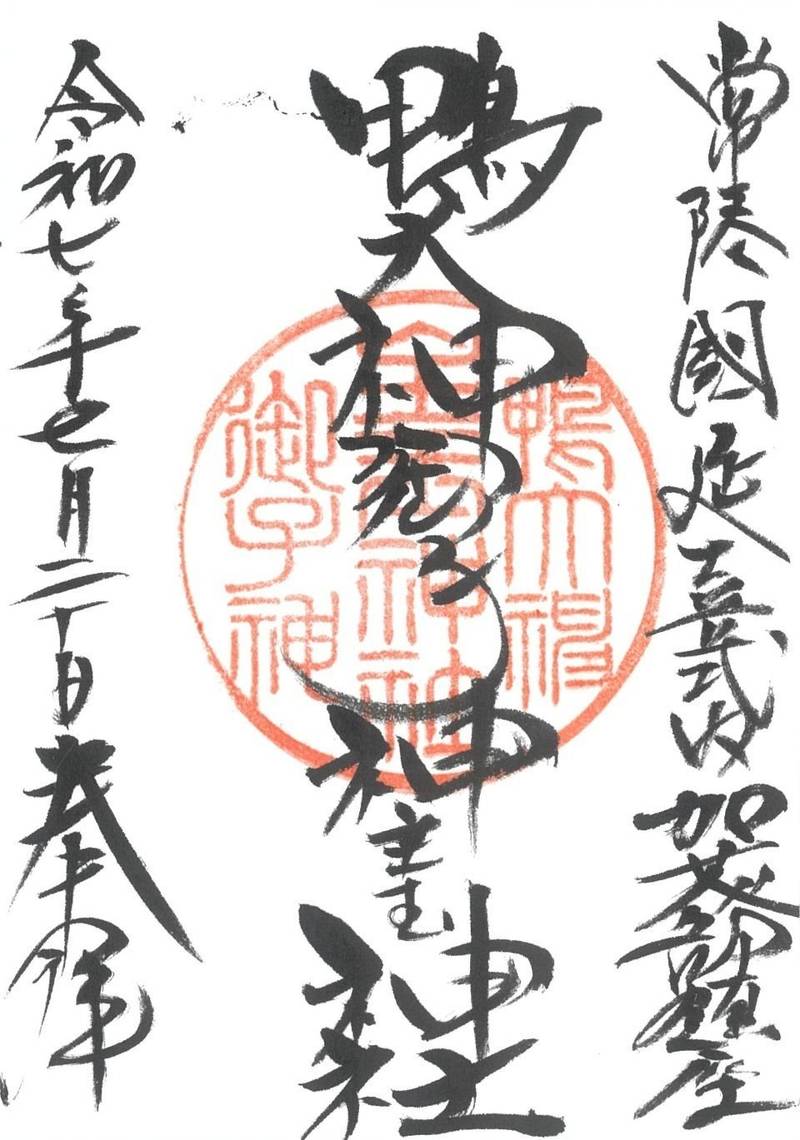 常陸國延喜式内加茂部鎮座
鴨大神御子神主玉神社
令和七年七月二十日奉拝
鴨大神
主玉神社
御子神